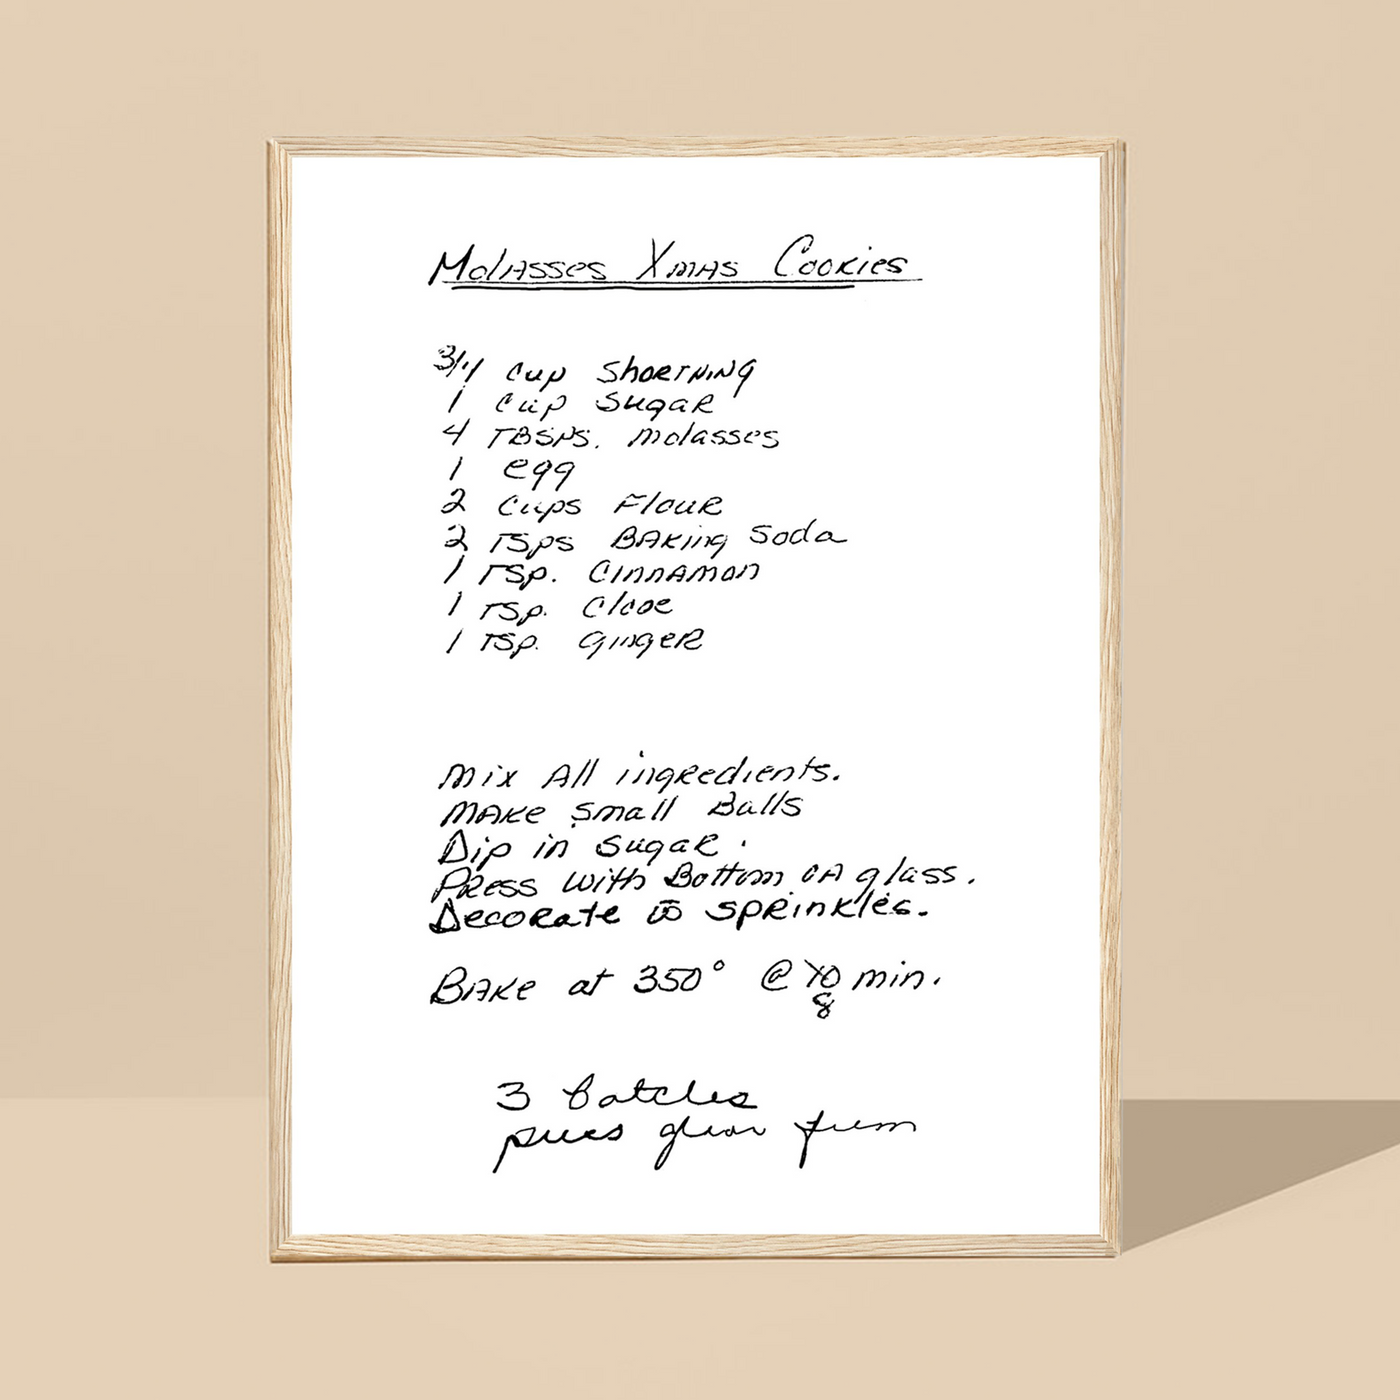 Molasses Xmas Cookies
3/4 cup Shortning
1 cup Sugar
4 TBSPS. Molasses
1 egg
2 cups Flour
2 TSPS Baking Soda
1 TSP. Cinnamon
1 TSP. Clove
1 TSP. Ginger
Mix All ingredients.
Make Small Balls
Dip in Sugar.
Press with Bottom of A glass.
Decorate w̄ sprinkles.
Bake at 350° @ 10 min.
8
3 batches